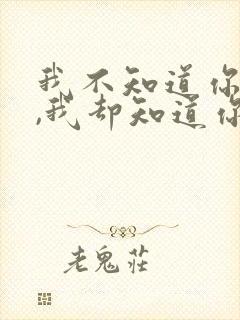 我不知道你
,我却知道你
老鬼莊